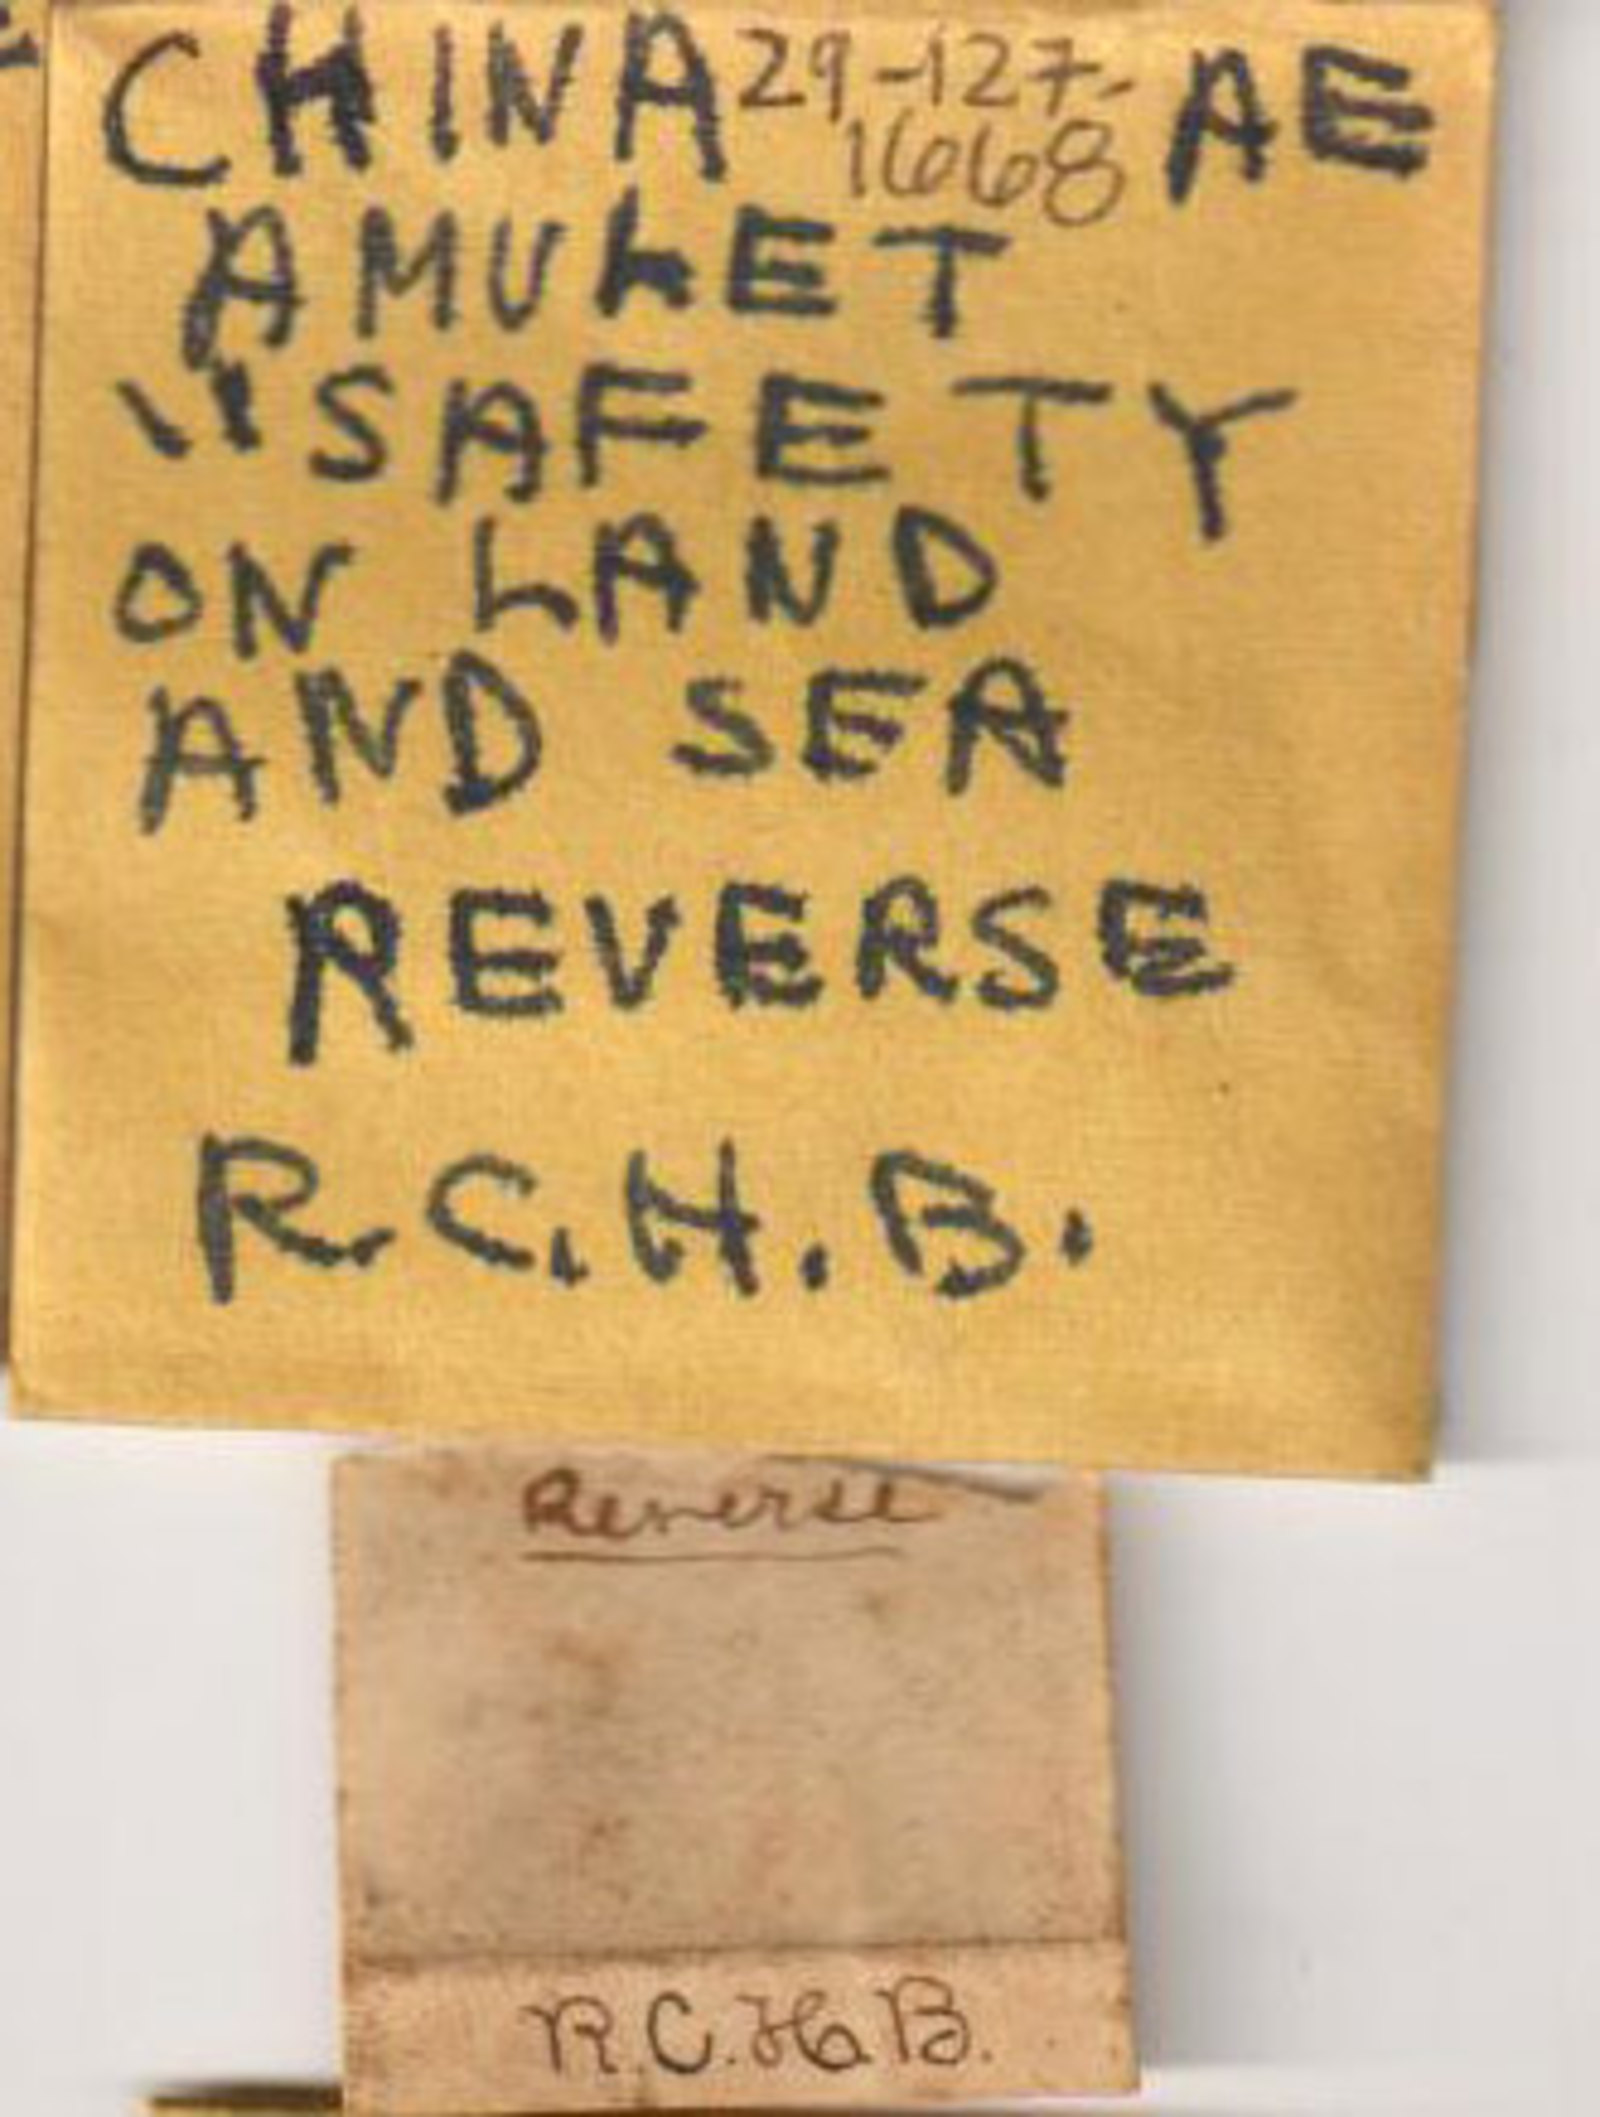 CHINA 29-127- AE
1668
AMULET
"SAFETY
ON LAND
AND SEA
REVERSE
R.C.H.B.
Reverse
R.C.H.B.